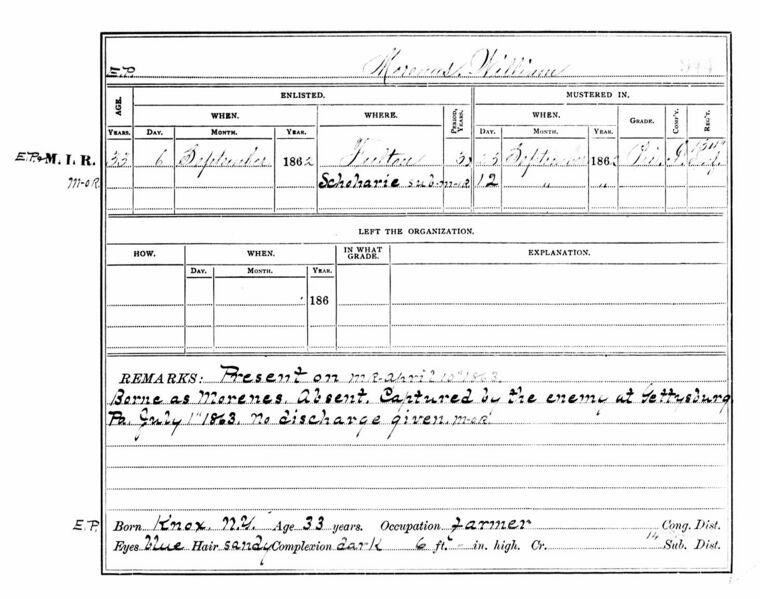 E.P. Morenus, William
ENLISTED. MUSTERED IN.
AGE. WHEN. WHERE. PERIOD, YEARS. WHEN. GRADE. COMP'Y. REG'T.
YEARS. DAY. MONTH. YEAR. DAY. MONTH. YEAR.
E.P.& M. I. R. 33 6 September 1862 Fulton 3 23 September 1862 Pri
M-O-R Schoharie sub-m-o-R 12 " "
LEFT THE ORGANIZATION.
HOW. WHEN. IN WHAT GRADE. EXPLANATION.
DAY. MONTH. YEAR.
186
REMARKS: Present on m R-april 10th 1863.
Borne as Morenes. Absent. Captured by the enemy at Gettysburg
Pa. July 1st 1863. No discharge given. m-o-R.
E.P. Born Knox, N.Y. Age 33 years. Occupation farmer Cong. Dist.
Eyes blue Hair sandy Complexion dark 6 ft. - in. high. Cr. 14 Sub. Dist.